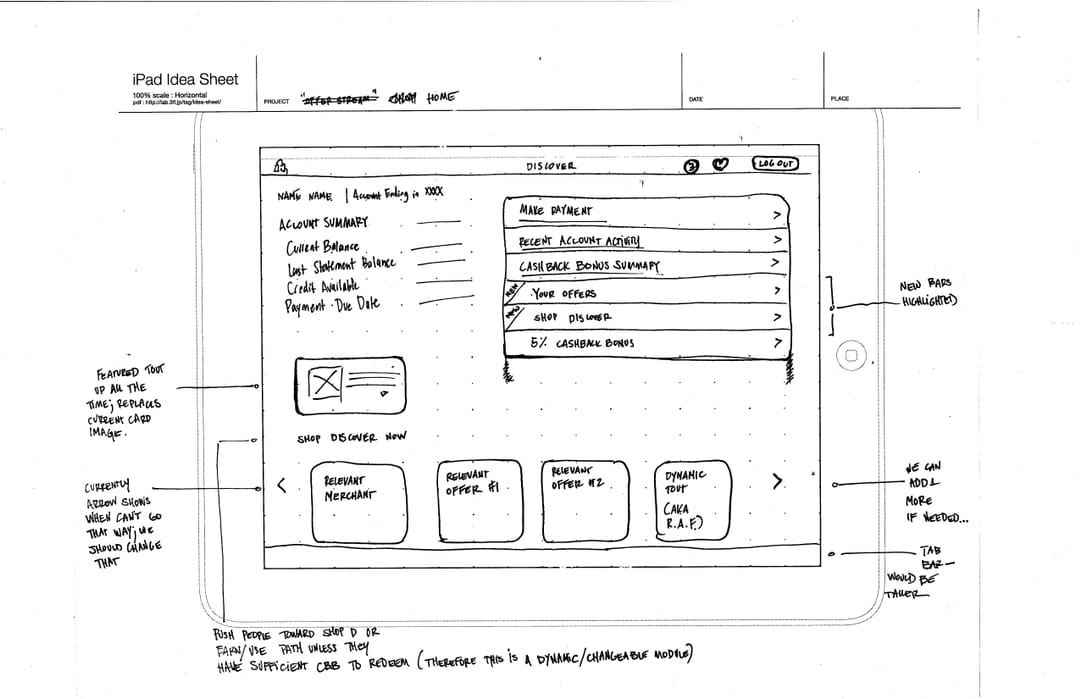 iPad Idea Sheet
100% scale : Horizontal
pdf : http://lab.3ft.jp/tag/idea-sheet/
PROJECT "OFFER STREAM" SHOP HOME
DATE
PLACE
DISCOVER
LOG OUT
NAME NAME | Account Ending in XXXX
ACCOUNT SUMMARY
Current Balance
Last Statement Balance
Credit Available
Payment Due Date
MAKE PAYMENT >
RECENT ACCOUNT ACTIVITY >
CASHBACK BONUS SUMMARY >
NEW YOUR OFFERS >
NEW SHOP DISCOVER >
5% CASHBACK BONUS >
NEW BARS
HIGHLIGHTED
FEATURED TOUT
UP ALL THE
TIME; REPLACES
CURRENT CARD
IMAGE.
SHOP DISCOVER NOW
<
RELEVANT
MERCHANT
RELEVANT
OFFER #1
RELEVANT
OFFER #2
DYNAMIC
TOUT
(AKA
R.A.F.)
>
CURRENTLY
ARROW SHOWS
WHEN CAN'T GO
THAT WAY; WE
SHOULD CHANGE
THAT
WE CAN
ADD 1
MORE
IF NEEDED...
TAB
BAR—
WOULD BE
TALLER
PUSH PEOPLE TOWARD SHOP D OR
EARN/USE PATH UNLESS THEY
HAVE SUFFICIENT CBB TO REDEEM (THEREFORE THIS IS A DYNAMIC/CHANGEABLE MODULE)